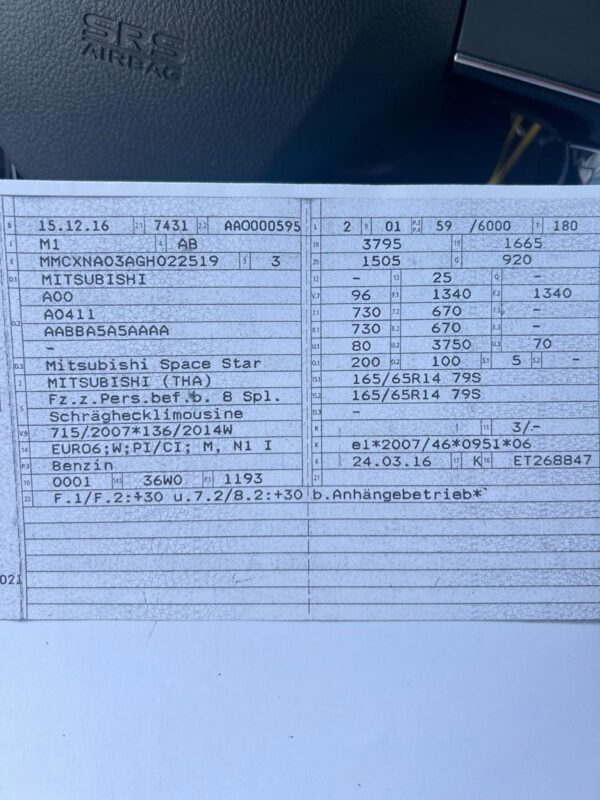 SRS
AIRBAG
B 15.12.16 2.1 7431 2.2 AAO000595
J M1 4 AB
E MMCXNA03AGH022519 3 3
D.1 MITSUBISHI
A00
D.2 A0411
AABBA5A5AAAA
-
D.3 Mitsubishi Space Star
2 MITSUBISHI (THA)
5 Fz.z.Pers.bef.b. 8 Spl.
Schräghecklimousine
V.9 715/2007*136/2014W
14 EURO6;W;PI/CI; M, N1 I
P.3 Benzin
10 0001 14.1 36W0 P.1 1193
22 F.1/F.2:+30 u.7.2/8.2:+30 b.Anhängebetrieb*
L 2 9 01 P.2 P.4 59 /6000 T 180
18 3795 19 1665
20 1505 G 920
12 - 13 25 Q -
V.7 96 F.1 1340 F.2 1340
7.1 730 7.2 670 7.3 -
8.1 730 8.2 670 8.3 -
U.1 80 U.2 3750 U.3 70
O.1 200 O.2 100 S.1 5 S.2 -
15.1 165/65R14 79S
15.2 165/65R14 79S
15.3 -
R 11 3/-
K e1*2007/46*0951*06
6 24.03.16 17 K 16 ET268847
21
021